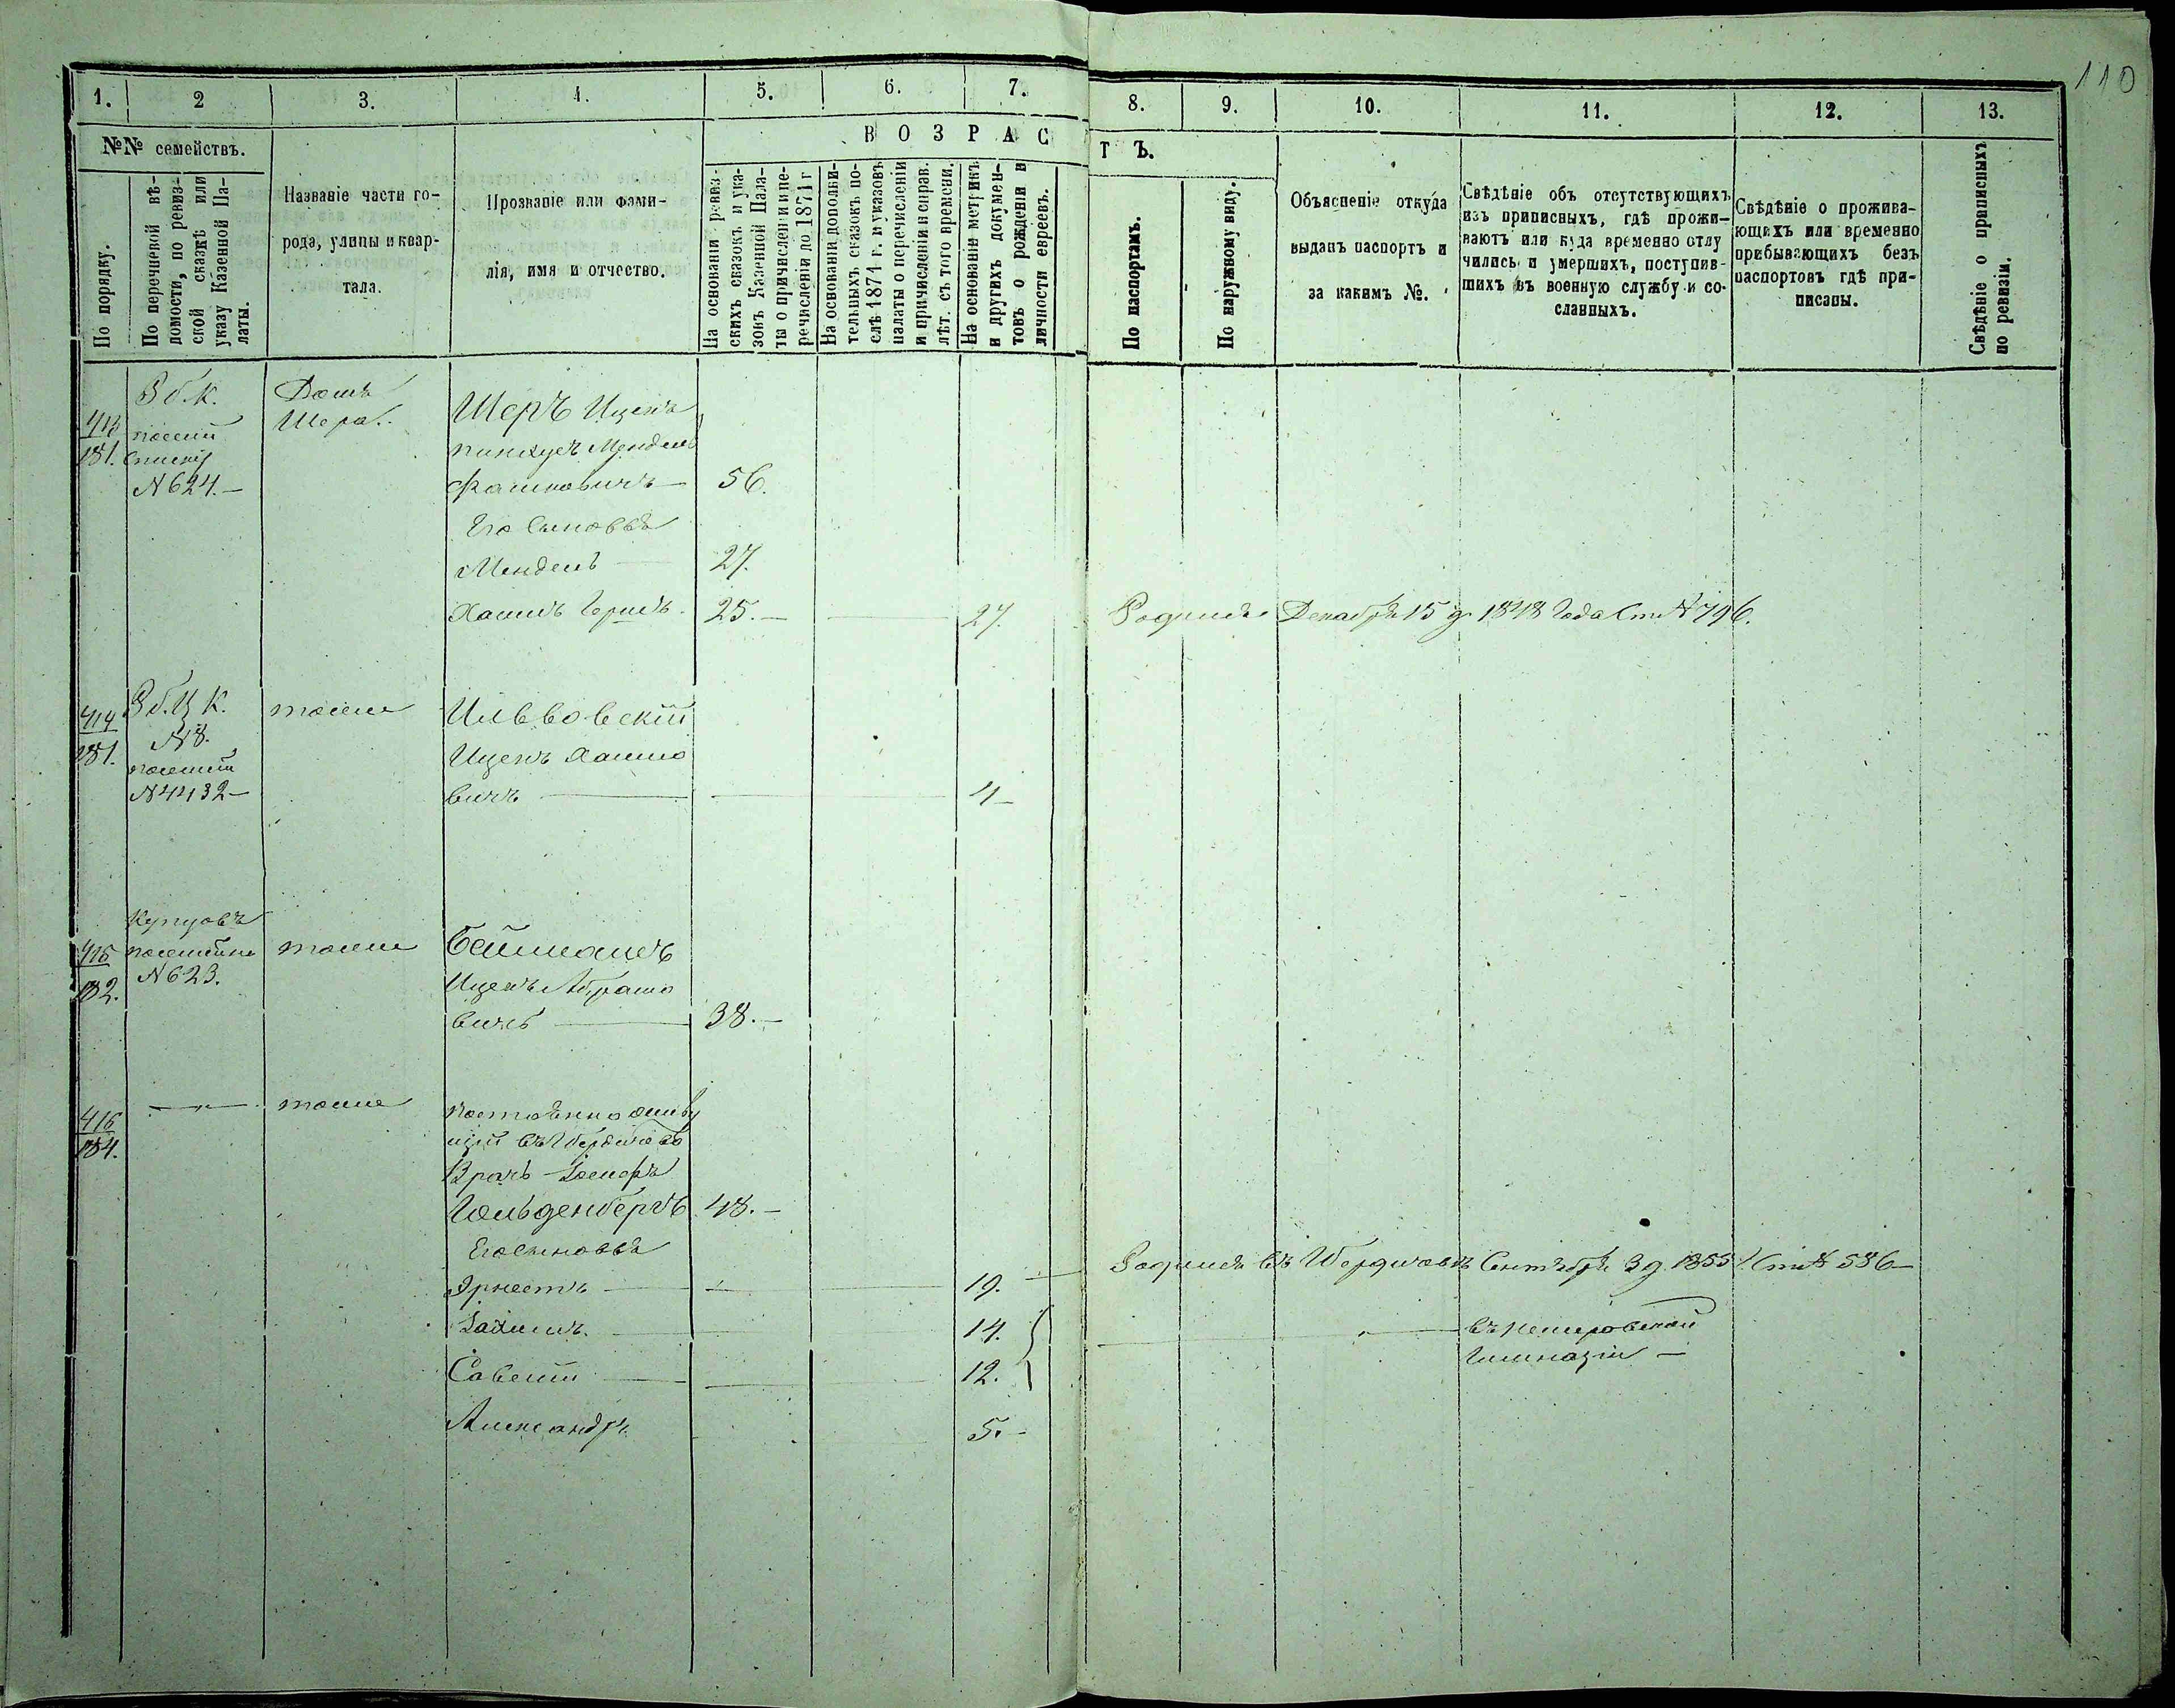 110
1. 2 3. 4. 5. 6. 7. 8. 9. 10. 11. 12. 13.
№№ семействъ.
По порядку.
По перечневой вѣ-
домости, по ревиз-
ской сказкѣ или
указу Казенной Па-
латы.
Названіе части го-
рода, улицы и квар-
тала.
Прозваніе или фами-
лія, имя и отчество.
ВОЗРАСТЪ.
На основаніи ревиз-
скихъ сказокъ и ука-
зовъ Казенной Пала-
ты о причисленіи и пе-
речисленіи по 1871 г
На основаніи дополни-
тельныхъ сказокъ по-
слѣ 1871 г. и указовъ
палаты о перечисленіи
и причисленіи и справ.
лѣт. съ того времени.
На основаніи метрикъ
и другихъ докумен-
товъ о рожденіи и
личности евреевъ.
По паспортамъ.
По наружному виду.
Объясненіе откуда
выданъ паспортъ и
за какимъ №.
Свѣдѣніе объ отсутствующихъ
изъ приписныхъ, гдѣ прожи-
ваютъ или куда временно отлу
чились и умершихъ, поступив-
шихъ въ военную службу и со-
сланныхъ.
Свѣдѣніе о прожива-
ющихъ или временно
прибывающихъ безъ
паспортовъ гдѣ при-
писаны.
Свѣдѣніе о приписныхъ
по ревизіи.
413
181.
№ 624.—
Домъ
Шера.
Шеръ Ицекъ
Пинхусъ Мендель
56.
Его сыновья
Мендель 27.
Хаимъ Гершъ. 25.— 27. Родился Декабря 15 д. 1848 года Ст № 796.
414
181.
№ 8.
№ 4432—
тоже
Ицекъ Хаимо
вичъ 4—
415
182.
Купцовъ
№ 623.
тоже
Ицекъ Абрамо
вичъ 38.—
416
184.
тоже
Врачъ
Гольденбергъ 48.—
Его сыновья
Эрнестъ 19. Родился въ Бердичевѣ Сентября 3 д. 1855 Ст № 586—
14. въ Немировской
Савелий 12. Гимназіи —
Александръ 5.—